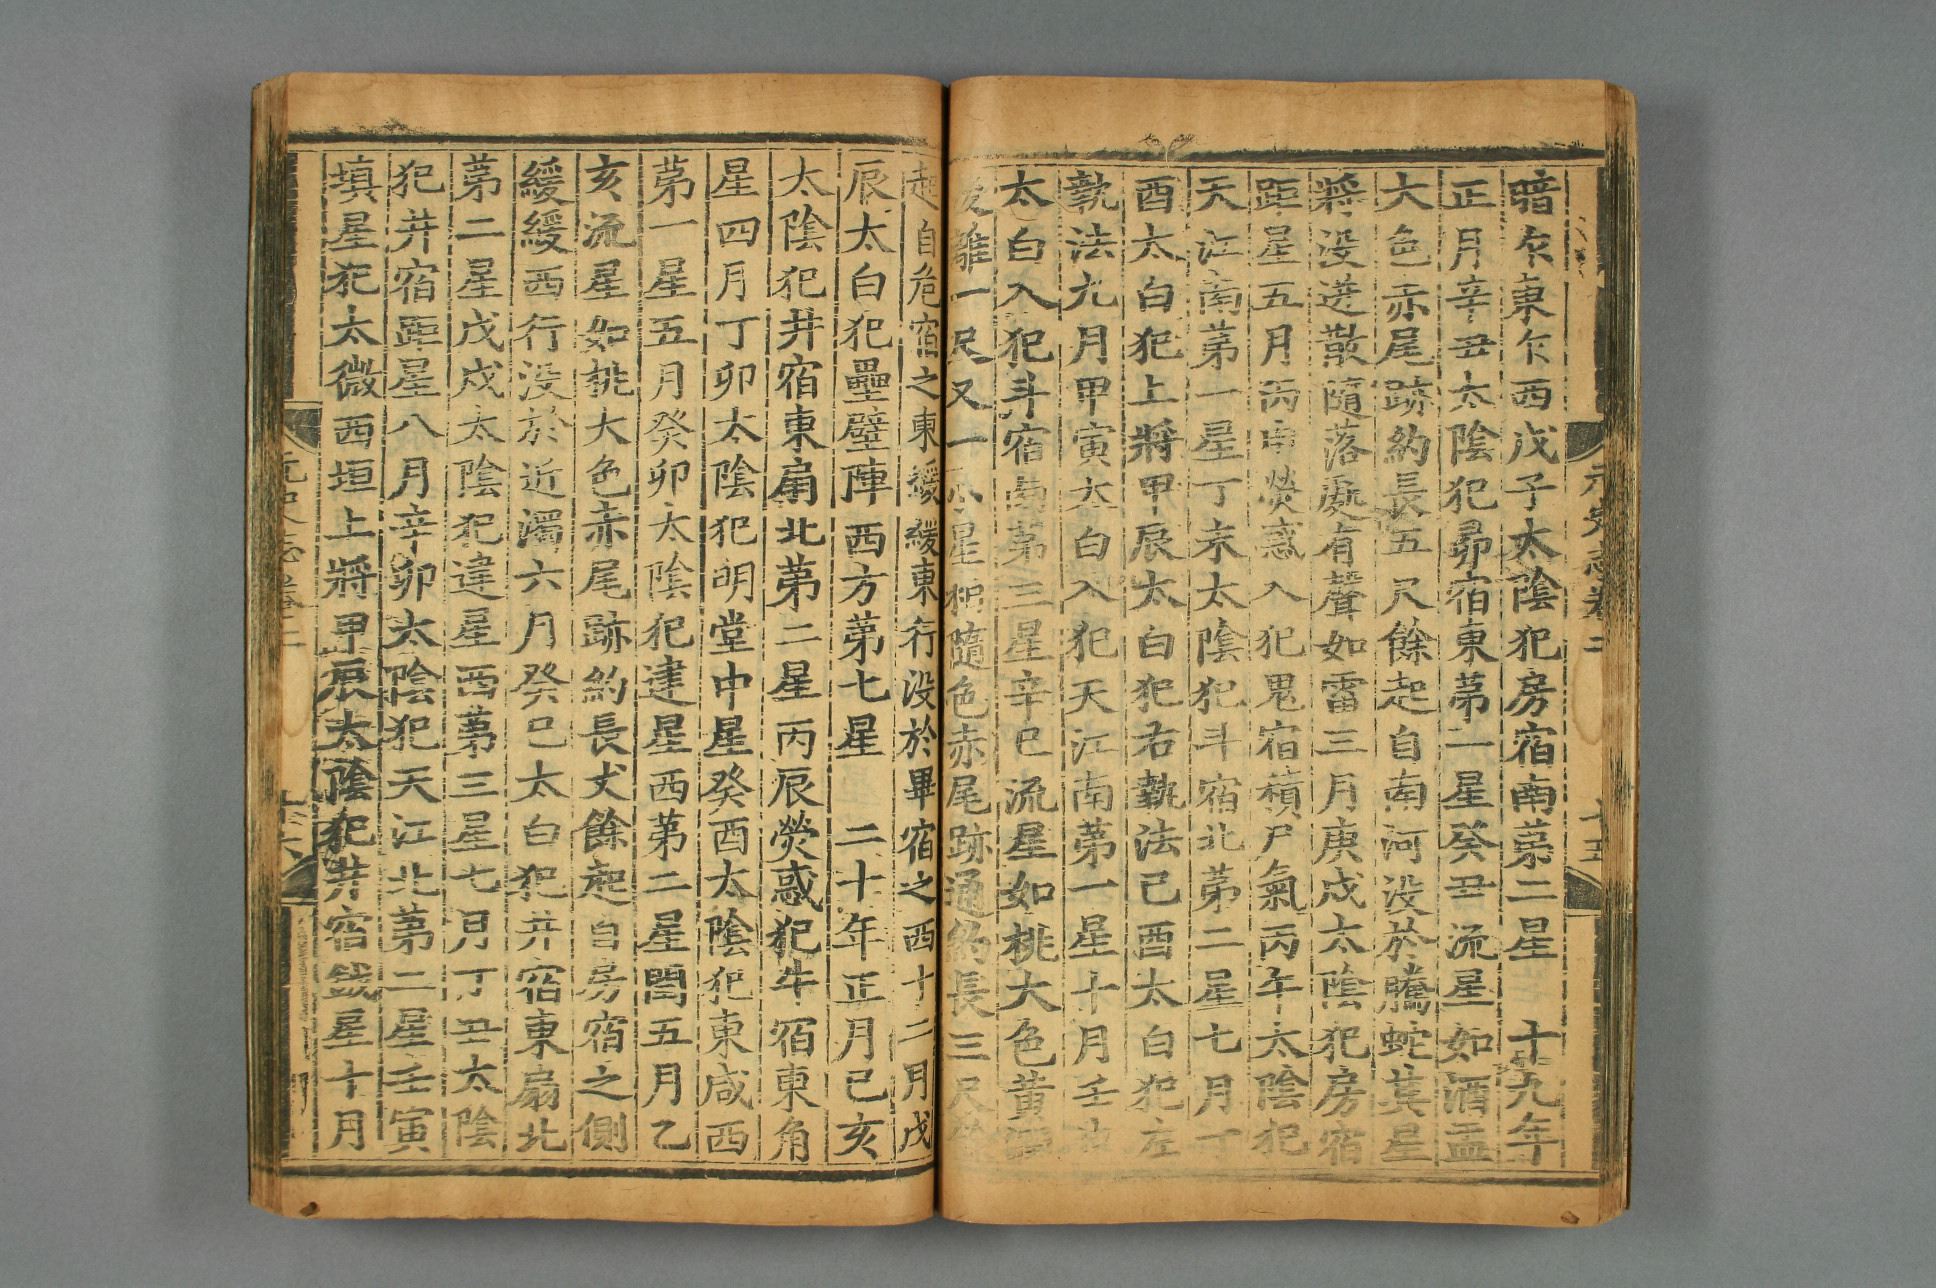 暗乍東乍西戊子太陰犯房宿南第二星　十九年
正月辛丑太陰犯昴宿東第一星癸丑流星如酒盃
大色赤尾跡約長五尺餘起自南河没於騰蛇其星
將没迸散隨落處有聲如雷三月庚戌太陰犯房宿
距星五月丙申熒惑入犯鬼宿積尸氣丙午太陰犯
天江南第一星丁未太陰犯斗宿北第二星七月丁
酉太白犯上將甲辰太白犯右執法己酉太白犯左
執法九月甲寅太白入犯天江南第一星十月壬
太白入犯斗宿南第三星辛巳流星如桃大色黄
後離一尺又一小星相隨色赤尾跡通約長三尺餘
起自危宿之東緩緩東行没於畢宿之西十二月戊
辰太白犯壘壁陣西方第七星　二十年正月己亥
太陰犯井宿東扇北第二星丙辰熒惑犯牛宿東角
星四月丁卯太陰犯明堂中星癸酉太陰犯東咸西
第一星五月癸卯太陰犯建星西第二星閏五月乙
亥流星如桃大色赤尾跡約長丈餘起自房宿之側
緩緩西行没於近濁六月癸巳太白犯井宿東扇北
第二星戊戌太陰犯建星西第三星七月丁丑太陰
犯井宿距星八月辛卯太陰犯天江北第二星壬寅
填星犯太微西垣上將甲辰太陰犯井宿鉞星十月